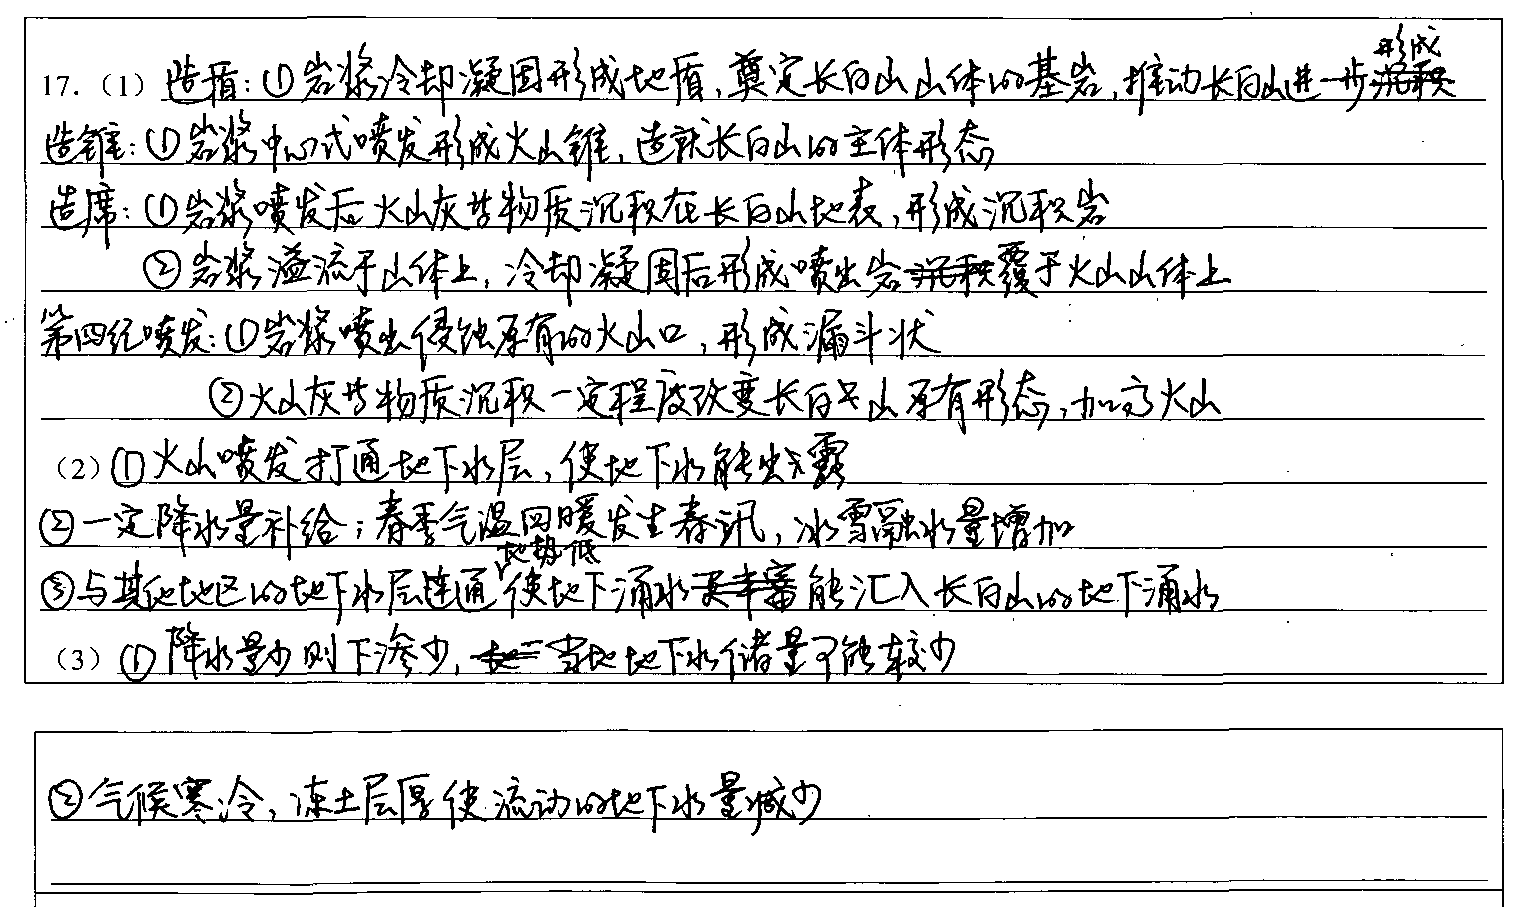 形成
17.（1）造盾：①岩浆冷却凝固形成地盾，奠定长白山山体的基岩，推动长白山进一步沉积
造锥：①岩浆中心式喷发形成火山锥，造就长白山的主体形态
造席：①岩浆喷发后火山灰等物质沉积在长白山地表，形成沉积岩
②岩浆溢流于山体上，冷却凝固后形成喷出岩沉积覆于火山山体上
第四纪喷发：①岩浆喷出侵蚀原有的火山口，形成漏斗状
②火山灰等物质沉积一定程度改变长白山原有形态，加高火山
（2）①火山喷发打通地下水层，使地下水能出露
②一定降水量补给；春季气温回暖发生春汛，冰雪融水量增加
地势低
③与其他地区的地下水层连通使地下涌水更丰富能汇入长白山的地下涌水
（3）①降水量少则下渗少，当地地下水储量可能较少
②气候寒冷，冻土层厚使流动的地下水量减少